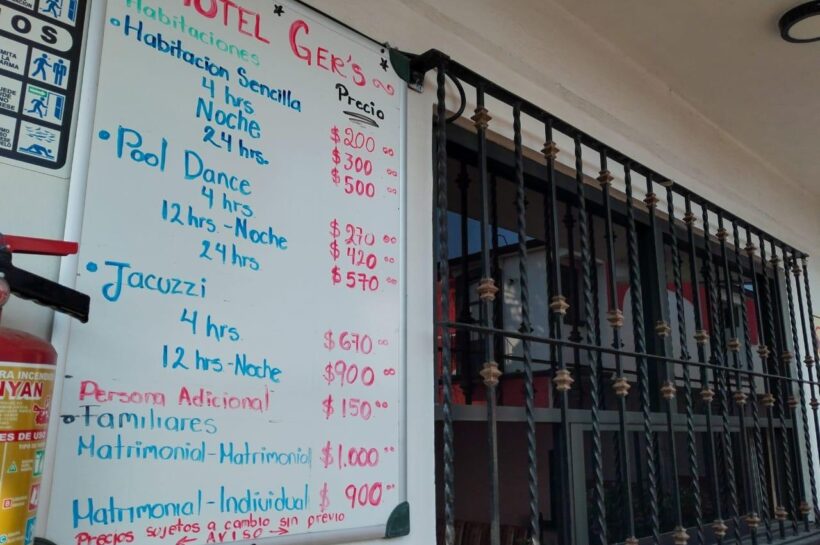 HOTEL GER'S
Habitaciones
Precio
• Habitacion Sencilla
4 hrs $200.00
Noche $300.00
24 hrs. $500.00
• Pool Dance
4 hrs $270.00
12 hrs.-Noche $420.00
24 hrs. $570.00
• Jacuzzi
4 hrs. $670.00
12 hrs.-Noche $900.00
Persona Adicional $150.00
Familiares
Matrimonial-Matrimonial $1.000.00
Matrimonial-Individual $900.00
Precios sujetos a cambio sin previo
AVISO
NYAN